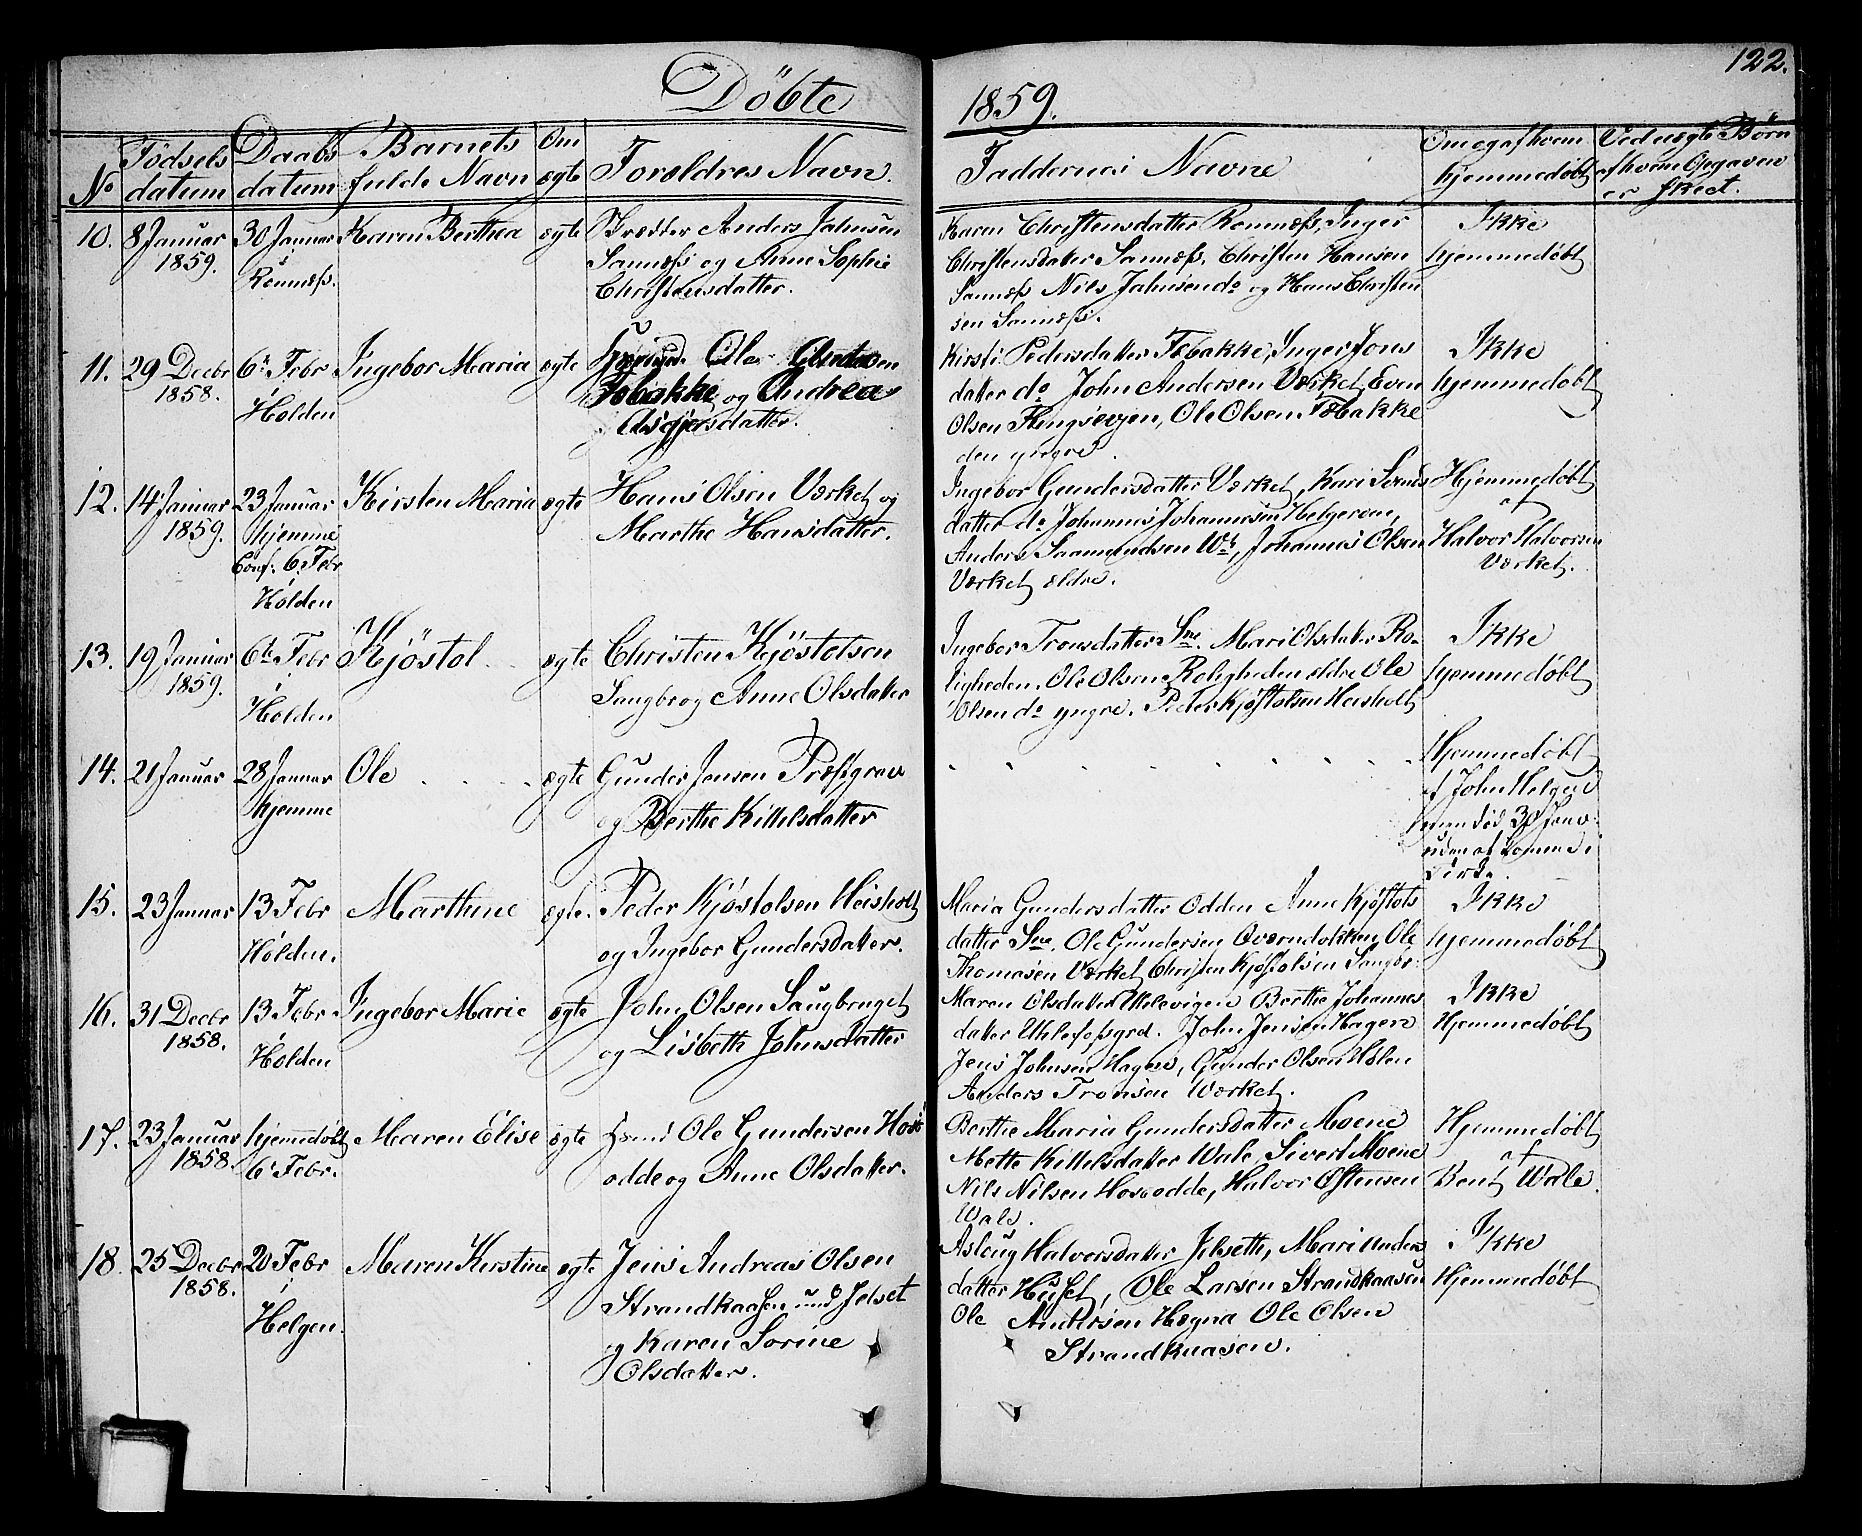 122.
Döbte 1859.
No Födsels datum Daabs datum Barnets fulde Navn Om ægte Forældres Navn.
Faddernes Navne Om og af hvem hjemmedøbt Ved uægte Børn af hvem Opgaven er skeet.
10. 8 Januar 1859. 30 Januar Romnæs. Karen Berthea ægte
Anders Jahnsen
Sannæs og Anne Sophie
Christensdatter.
Karen Christensdatter Romnæs, Inger
Christensdatter Sannæs, Christen Hansen
Sannæs Nils Jahnsen do og Hans Christen
sen Sannæs.
Ikke
hjemmedøbt
11. 29 Decbr 1858. 6. Febr Holden Ingebor Maria ægte
Ole
Tobakke og Andrea
datter.
Kirsti Pedersdatter Tobakke, Inger Jons
datter do John Andersen Værket, Even
Olsen, Ole Olsen Tobakke
den yngre.
Ikke
hjemmedøbt
12. 14 Januar 1859. 23 Januar hjemme Conf. 6. Febr Holden Kirsten Maria ægte
Hans Olsen Værket og
Marthe Hansdatter.
Ingebor Gundersdatter Værket, Kari
datter do Johannes Johannesen Helgeroen,
Anders Saamundsen Wk, Johannes Olsen
Værket ældre.
Hjemmedøbt
af
Halvor Halvorsen
Værket.
13. 19 Januar 1859. 6te Febr i Holden Kjöstol ægte
Christen Kjöstolsen
Saugbr og Anne Olsdatter
Ingebor Tronsdatter Sne. Mari Olsdatter Ro-
ligheden. Ole Olsen Roligheden ældre Ole
Olsen do yngre. Peder Kjöstolsen Heisholt
Ikke
hjemmedøbt
14. 21 Januar 28 Januar hjemme Ole ægte
Gunder Jensen Præstgrav
og Berthe Kittelsdatter
Hjemmedøbt
af John Helgen
død 30 Janv.
uden at komme i
Kirke.
15. 23 Januar 13 Febr Holden. Marthine ægte.
Peder Kjöstolsen Heisholt
og Ingebor Gundersdatter.
Maria Gundersdatter Odden Anne Kjöstols
datter Sne, Ole Gundersen Qværndokken, Ole
Thomasen Værket Christen Kjöstolsen Saugbr:
Ikke
hjemmedøbt
16. 31 Decbr 1858. 13 Febr Holden Ingebor Marie ægte
John Olsen Saugbruget
og Lisbeth Johnsdatter
Maren Olsdatter Uhlevigen Berthe Johannes
datter Uhlefosgrd. John Jensen Hagen
Jens Johnsen Hagen, Gunder Olsen Holen
Anders Tronsen Værket.
Ikke
Hjemmedøbt
17. 23 Januar 1858. hjemmedøbt 6. Febr. Maren Elise ægte
Ole Gundersen Hos
odde og Anne Olsdatter.
Berthe Maria Gundersdatter Moene
Mette Kittelsdatter Wale, Sivert Moene
Nils Nilsen Hosodde, Halvor Ostensen
Wale.
Hjemmedøbt
af
Bent Wale.
18. 25 Decbr 1858. 20 Febr i Helgen. Maren Kirstine ægte
Jens Andreas Olsen
Strandkaasen Jelset
og Karen Sorine
Olsdatter.
Aslaug Halvorsdatter Jelseth, Mari Anders
datter Huset, Ole Larsen Strandkaasen
Ole Andersen Hægna Ole Olsen
Strandkaasen.
Ikke
Hjemmedøbt